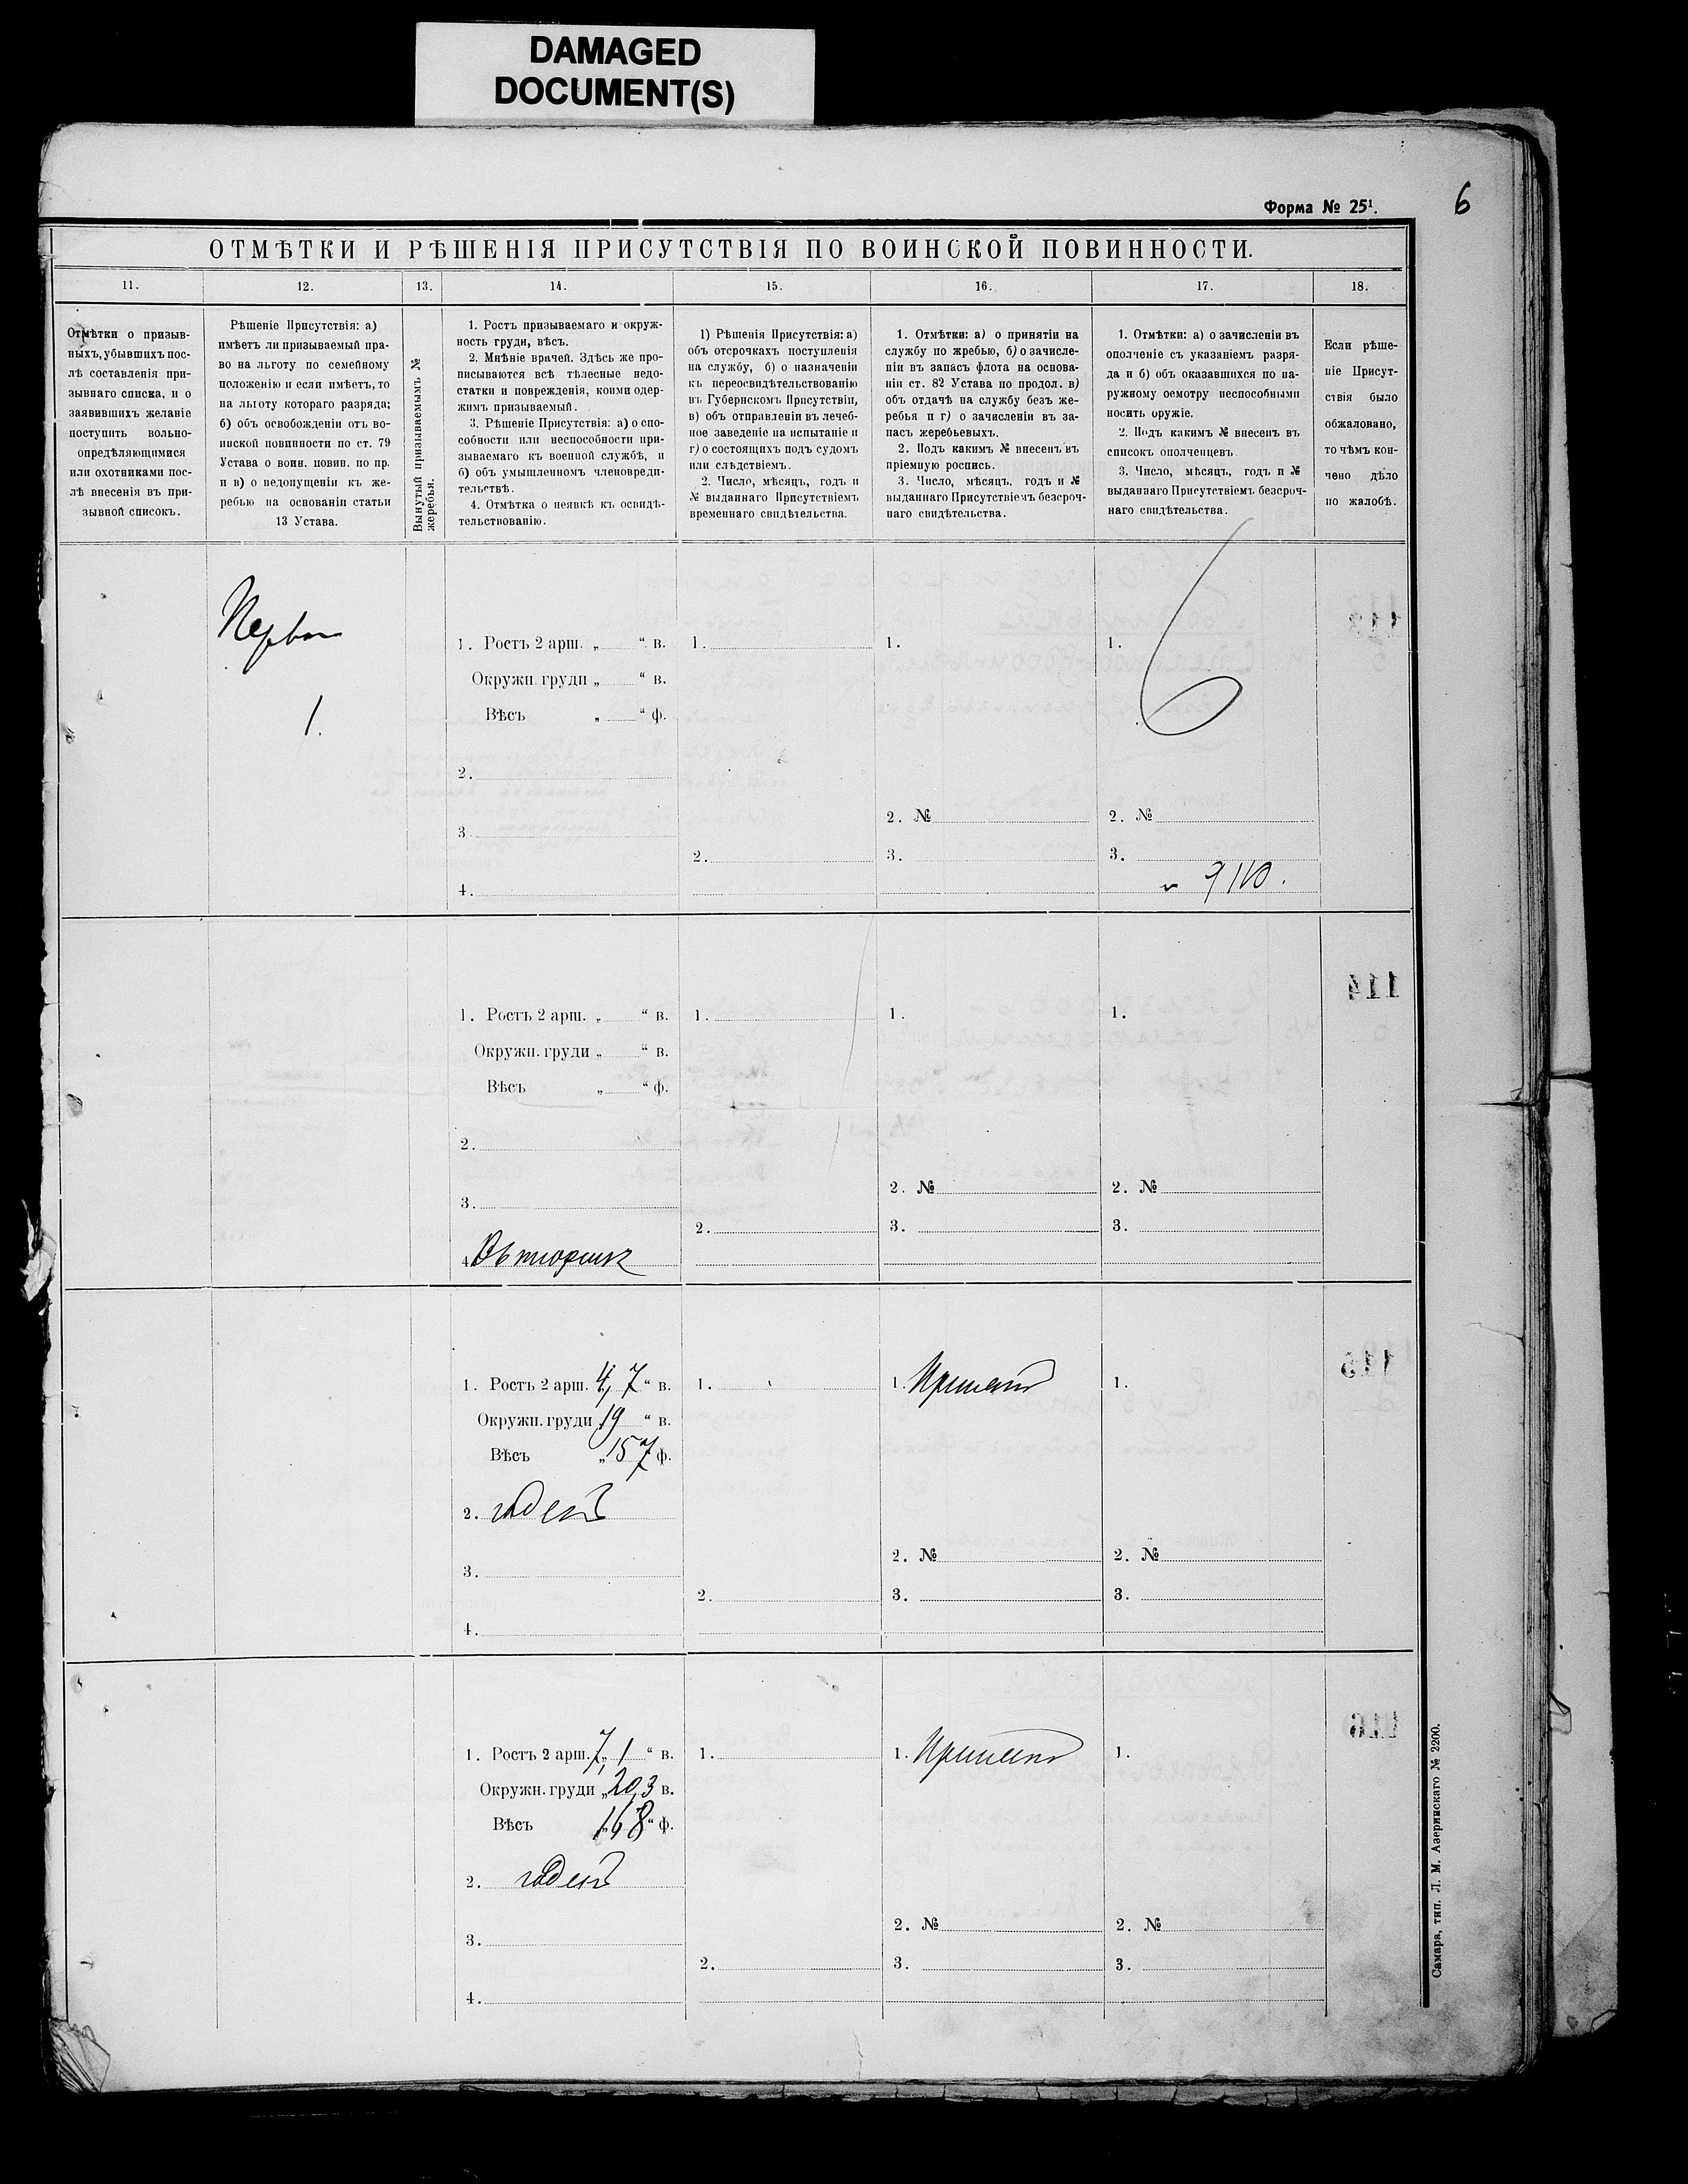 DAMAGED
DOCUMENT(S)
Форма № 25¹.
6
ОТМѢТКИ И РѢШЕНІЯ ПРИСУТСТВІЯ ПО ВОИНСКОЙ ПОВИННОСТИ.
11.
12.
13.
14.
15.
16.
17.
18.
Отмѣтки о призыв-
ныхъ, убывшихъ пос-
лѣ составленія при-
зывнаго списка, и о
заявившихъ желаніе
поступить вольно-
опредѣляющимися
или охотниками пос-
лѣ внесенія въ при-
зывной списокъ.
Рѣшеніе Присутствія: а)
имѣетъ ли призываемый пра-
во на льготу по семейному
положенію и если имѣетъ, то
на льготу котораго разряда;
б) объ освобожденіи отъ во-
инской повинности по ст. 79
Устава о воин. повин. по пр.
и в) о недопущеніи къ же-
ребью на основаніи статьи
13 Устава.
Вынутый призываемымъ №
жеребья.
1. Ростъ призываемаго и окруж-
ность груди, вѣсъ.
2. Мнѣніе врачей. Здѣсь же про-
писываются всѣ тѣлесные недо-
статки и поврежденія, коими одер-
жимъ призываемый.
3. Рѣшеніе Присутствія: а) о спо-
собности или неспособности при-
зываемаго къ военной службѣ, и
б) объ умышленномъ членовреди-
тельствѣ.
4. Отмѣтка о неявкѣ къ освидѣ-
тельствованію.
1) Рѣшенія Присутствія: а)
объ отсрочкахъ поступленія
на службу, б) о назначеніи
къ переосвидѣтельствованію
въ Губернскомъ Присутствіи,
в) объ отправленіи въ лечеб-
ное заведеніе на испытаніе и
г) о состоящихъ подъ судомъ
или слѣдствіемъ.
2. Число, мѣсяцъ, годъ и
№ выданнаго Присутствіемъ
временнаго свидѣтельства.
1. Отмѣтки: а) о принятіи на
службу по жребью, б) о зачисле-
ніи въ запасъ флота на основа-
ніи ст. 82 Устава по продол. в)
объ отдачѣ на службу безъ же-
ребья и г) о зачисленіи въ за-
пасъ жеребьевыхъ.
2. Подъ какимъ № внесенъ въ
пріемную роспись.
3. Число, мѣсяцъ, годъ и №
выданнаго Присутствіемъ безсроч-
наго свидѣтельства.
1. Отмѣтки: а) о зачисленіи въ
ополченіе съ указаніемъ разря-
да и б) объ оказавшихся по на-
ружному осмотру неспособными
носить оружіе.
2. Подъ какимъ № внесенъ въ
списокъ ополченцевъ
3. Число, мѣсяцъ, годъ и №
выданнаго Присутствіемъ безсроч-
наго свидѣтельства.
Если рѣше-
ніе Присут-
ствія было
обжаловано,
то чѣмъ кон-
чено дѣло
по жалобѣ.
1.
1. Ростъ 2 арш. „ “ в.
Окружн. груди „ “ в.
Вѣсъ „ “ ф.
2.
3.
4.
1.
2.
1.
2. №
3.
1.
6
2. №
3.
9110.
1. Ростъ 2 арш. „ “ в.
Окружн. груди „ “ в.
Вѣсъ „ “ ф.
2.
3.
4.
1.
2.
1.
2. №
3.
1.
2. №
3.
114
1. Ростъ 2 арш. 4, 7 “ в.
Окружн. груди 19 “ в.
Вѣсъ „ 157 ф.
2. годенъ
3.
4.
1.
2.
1. Принятъ
2. №
3.
1.
2. №
3.
115
1. Ростъ 2 арш. 7, 1 “ в.
Окружн. груди „ 20,3 в.
Вѣсъ 168 “ ф.
2. годенъ
3.
4.
1.
2.
1. Принятъ
2. №
3.
1.
2. №
3.
116
Самара, тип. Л. М. Азеринскаго № 2200.